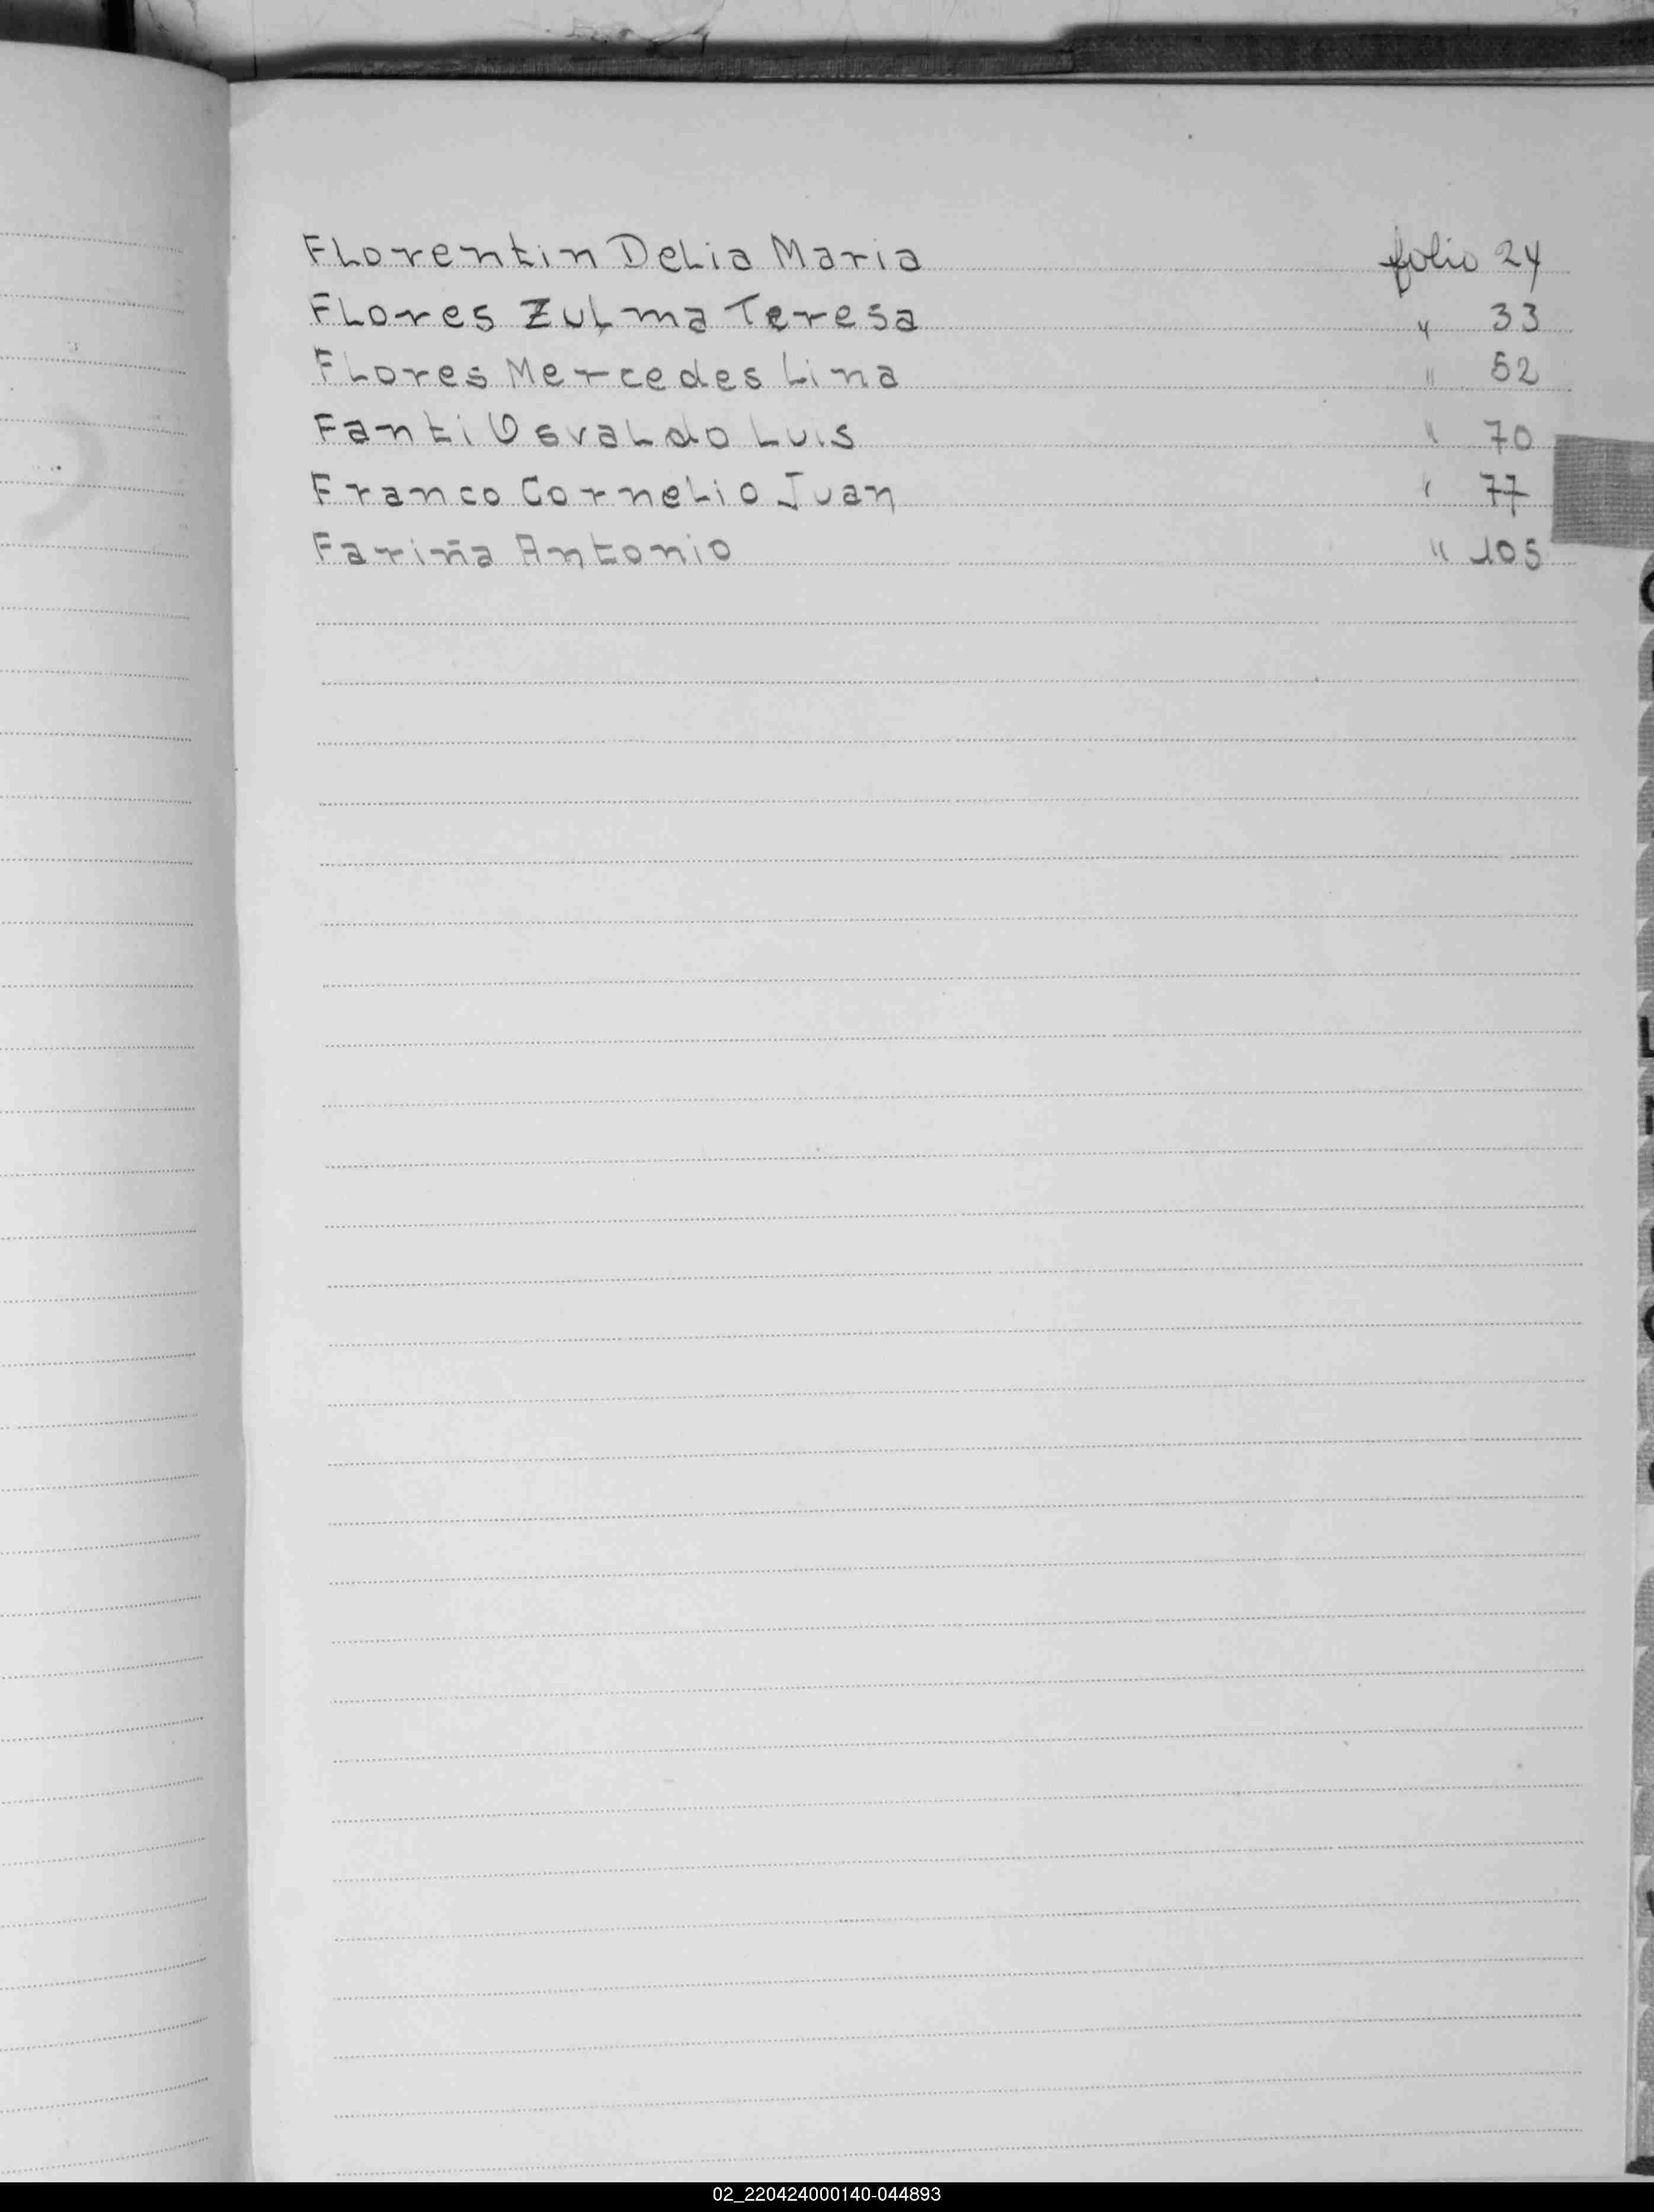 Florentin Delia Maria folio 24
Flores Zulma Teresa " 33
Flores Mercedes Lina " 52
Fanti Osvaldo Luis " 70
Franco Cornelio Juan " 77
Fariña Antonio " 105
02_220424000140-044893